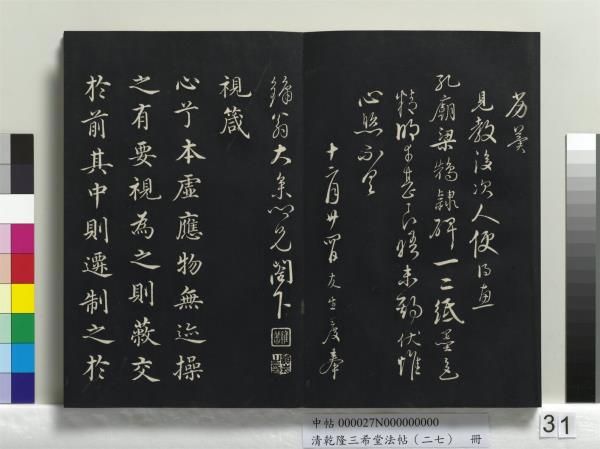 芴羹
見教後次人便得直
孔廟梁鵠隸碑一二紙墨色
精明者甚好
伏惟
心照不具
十二月廿四日友生度奉
鏽翁大參心兄閣下
視箴
心兮本虛應物無迹操
之有要視為之則蔽交
於前其中則遷制之於
中帖 000027N000000000
清乾隆三希堂法帖(二七) 冊
31